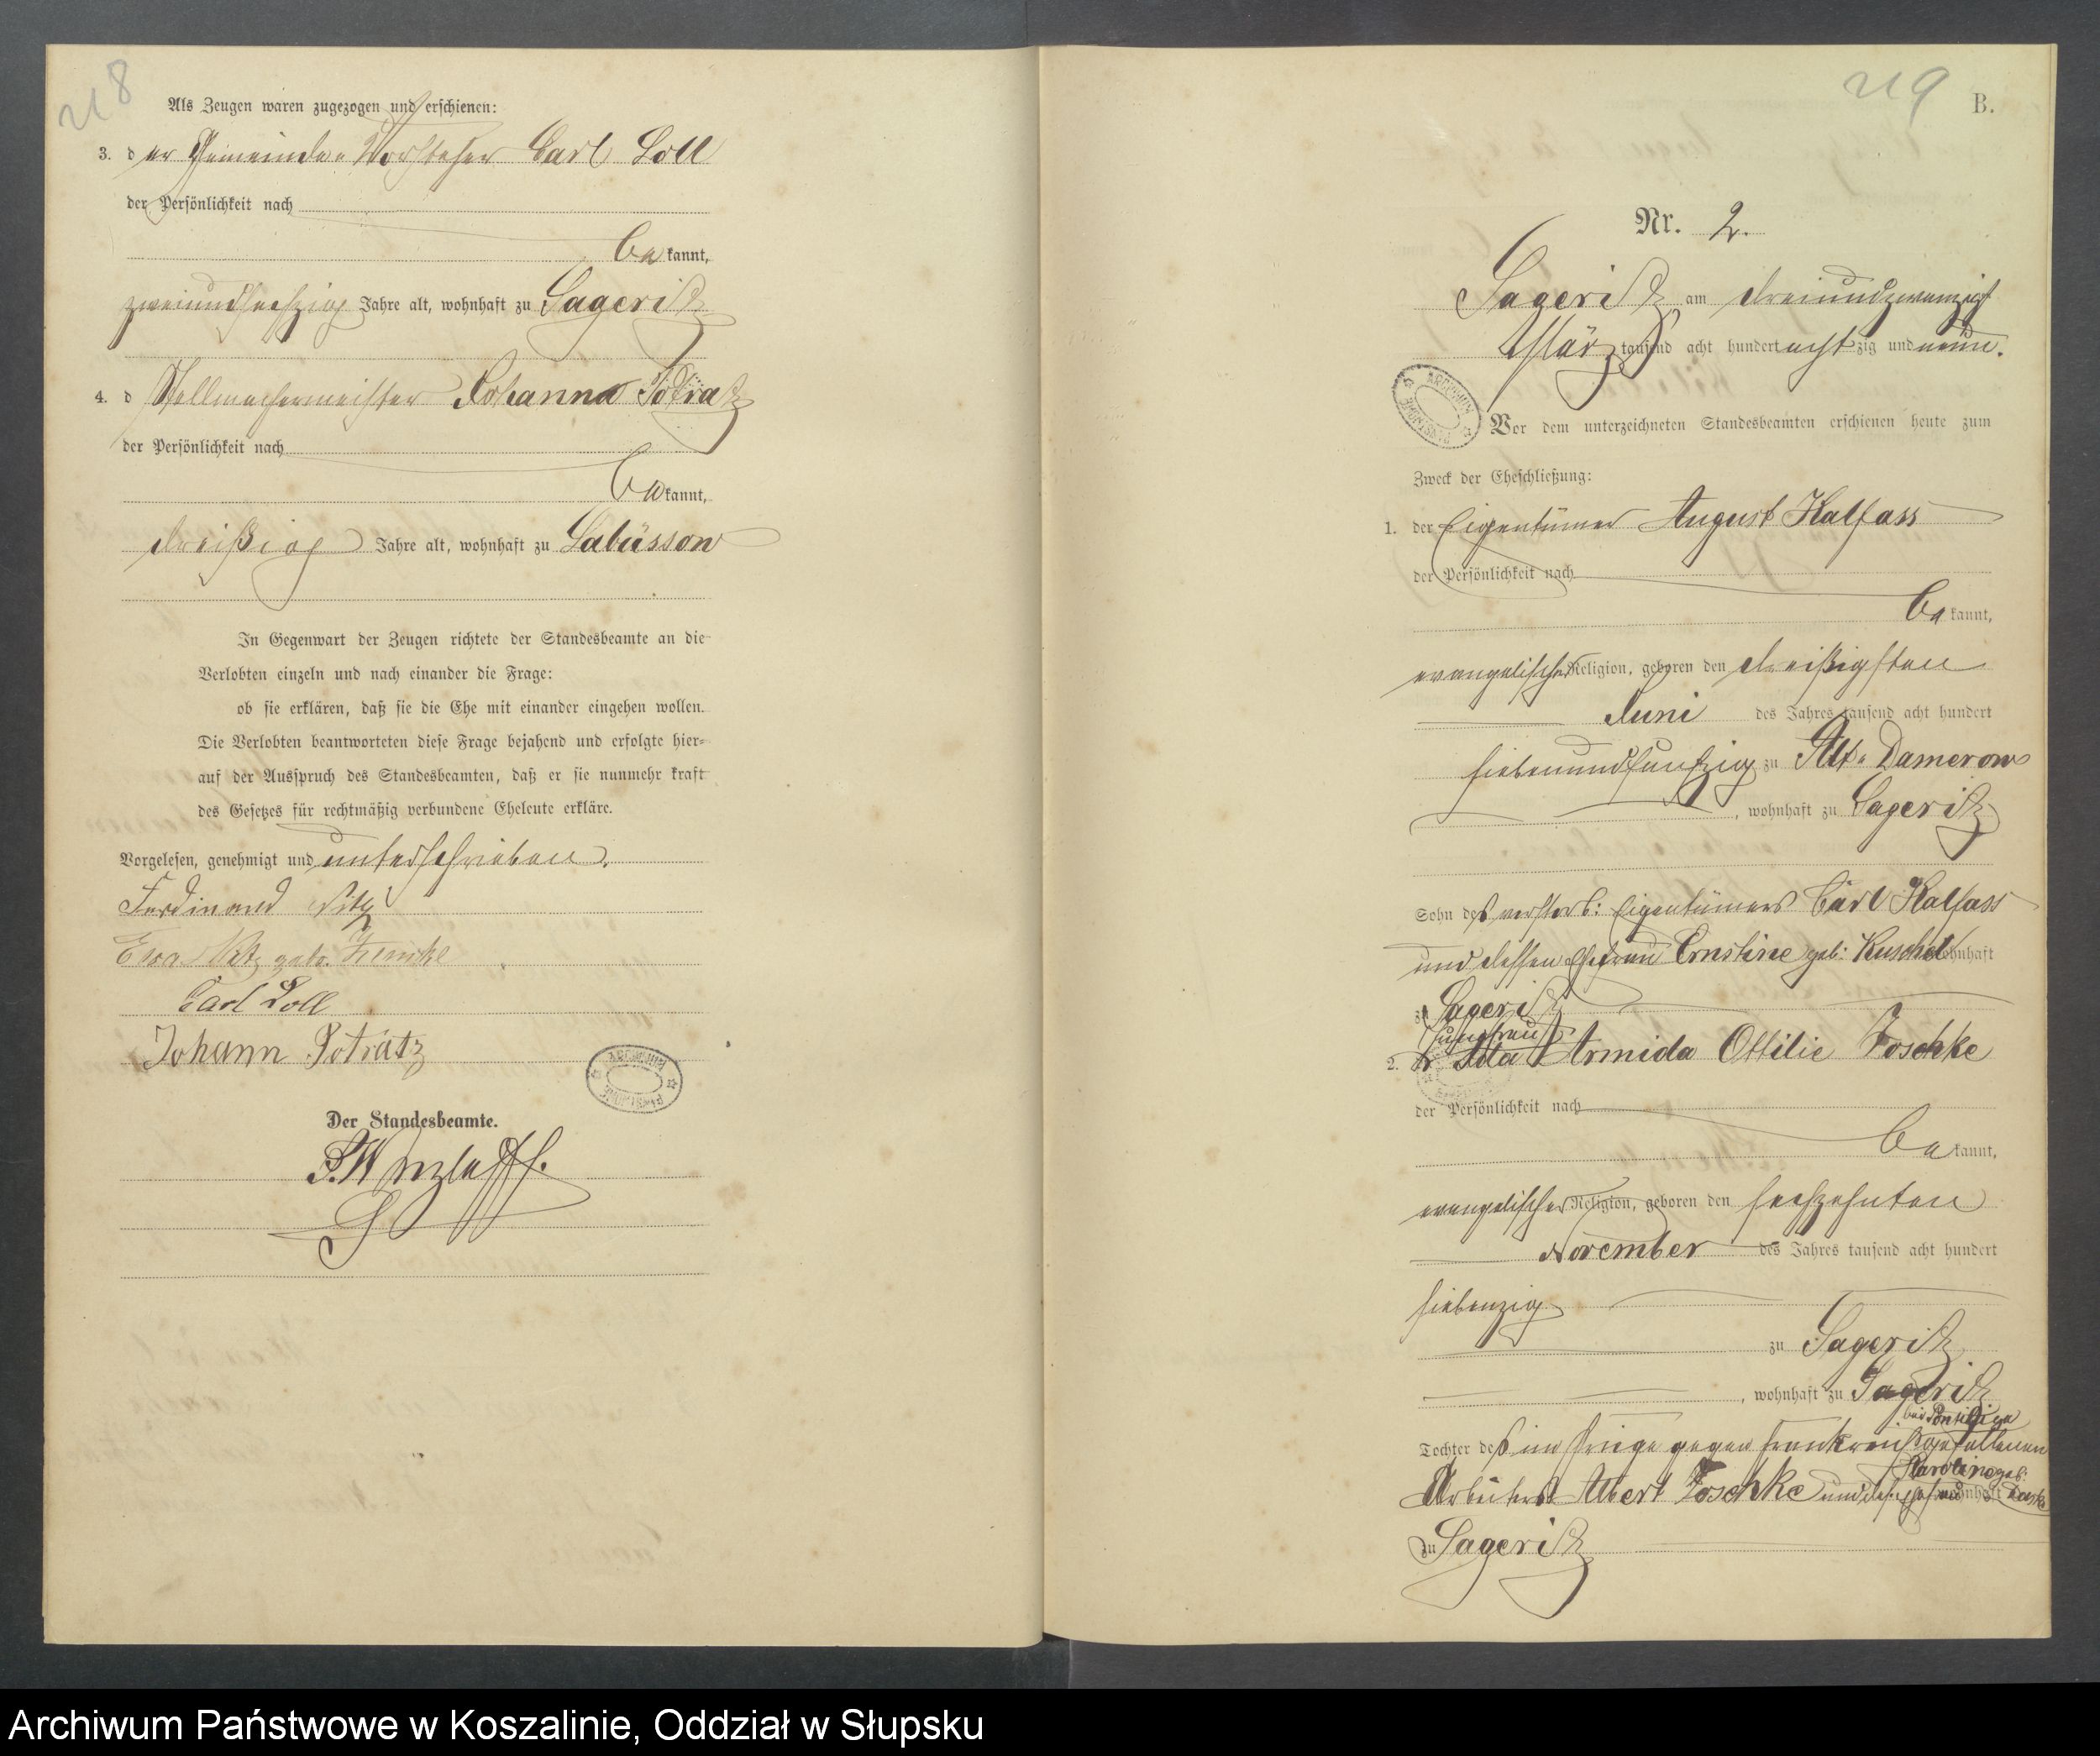 218
Als Zeugen waren zugezogen und erschienen:
3. der Gemeinde-Vorsteher Carl Loll
der Persönlichkeit nach
bekannt,
zweiundsechzig Jahre alt, wohnhaft zu Sageritz
4. d Stellmachermeister Johann Potratz
der Persönlichkeit nach
bekannt,
dreißig Jahre alt, wohnhaft zu Labüssow
In Gegenwart der Zeugen richtete der Standesbeamte an die
Verlobten einzeln und nach einander die Frage:
ob sie erklären, daß sie die Ehe mit einander eingehen wollen.
Die Verlobten beantworteten diese Frage bejahend und erfolgte hier-
auf der Ausspruch des Standesbeamten, daß er sie nunmehr kraft
des Gesetzes für rechtmäßig verbundene Eheleute erkläre.
Vorgelesen, genehmigt und unterschrieben.
Ferdinand
geb.
Carl Loll
Johann Potratz
Der Standesbeamte.
219
B.
Nr. 2.
Sageritz, am dreiundzwanzigst
März tausend acht hundert achtzig und neun.
Vor dem unterzeichneten Standesbeamten erschienen heute zum
Zweck der Eheschließung:
1. der Eigentümer August Kalfass
der Persönlichkeit nach
bekannt,
evangelischer Religion, geboren den dreißigsten
Juni des Jahres tausend acht hundert
siebenundfunfzig zu Alt-Damerow
, wohnhaft zu Sageritz
Sohn des verstorb: Eigentümers Carl Kalfass
und dessen Ehefrau Ernstine geb: Kuschel wohnhaft
zu Sageritz
Jungfrau
2. Ida Armida Ottilie Joschke
der Persönlichkeit nach
bekannt,
evangelischer Religion, geboren den sechzehnten
November des Jahres tausend acht hundert
siebenzig
zu Sageritz
, wohnhaft zu Sageritz
bei
Tochter des im Kriege gegen Frankreich gefallenen
Karoline geb:
Arbeiters Albert Joschke und dess: Ehefrau wohnhaft
zu Sageritz
Archiwum Państwowe w Koszalinie, Oddział w Słupsku